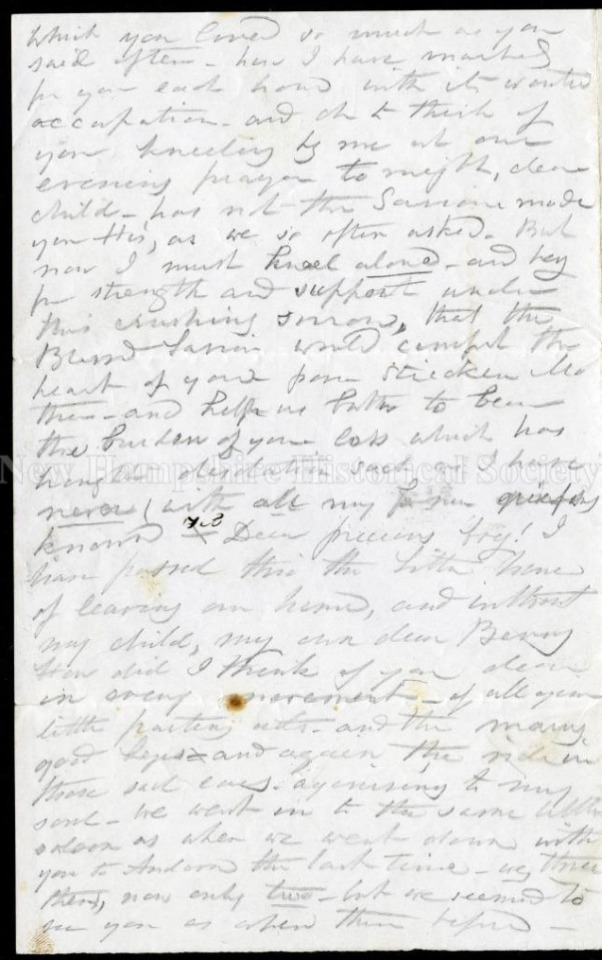 which you loved so much as you
said often - how I have marked
for you each hour with its wonted
occupation - and oh to think of
you kneeling by me at our
evening prayer to night, dear
child - has not the Saviour made
you His, as we so often asked. But
now I must kneel alone - and beg
for strength and support under
this crushing sorrow, that the
Blessed Saviour would comfort the
heart of your poor stricken Mo
ther - and help us both to bear
the burden of your loss which has
brought desolation such as I have
New Hampshire Historical Society
never (with all my former griefs
known yet Dear precious boy! I
have passed thro the bitter
of leaving our home, and without
my child, my own dear Benny
How did I think of you dear
in every movement - of all your
little parting acts - and the many
good byes - and again the ride in
those sad cars - agonising to my
soul - we went in to the same little
saloon as when we went down with
you to Andover the last time - we, three
then, now only two - but we seemed to
see you as when there before -